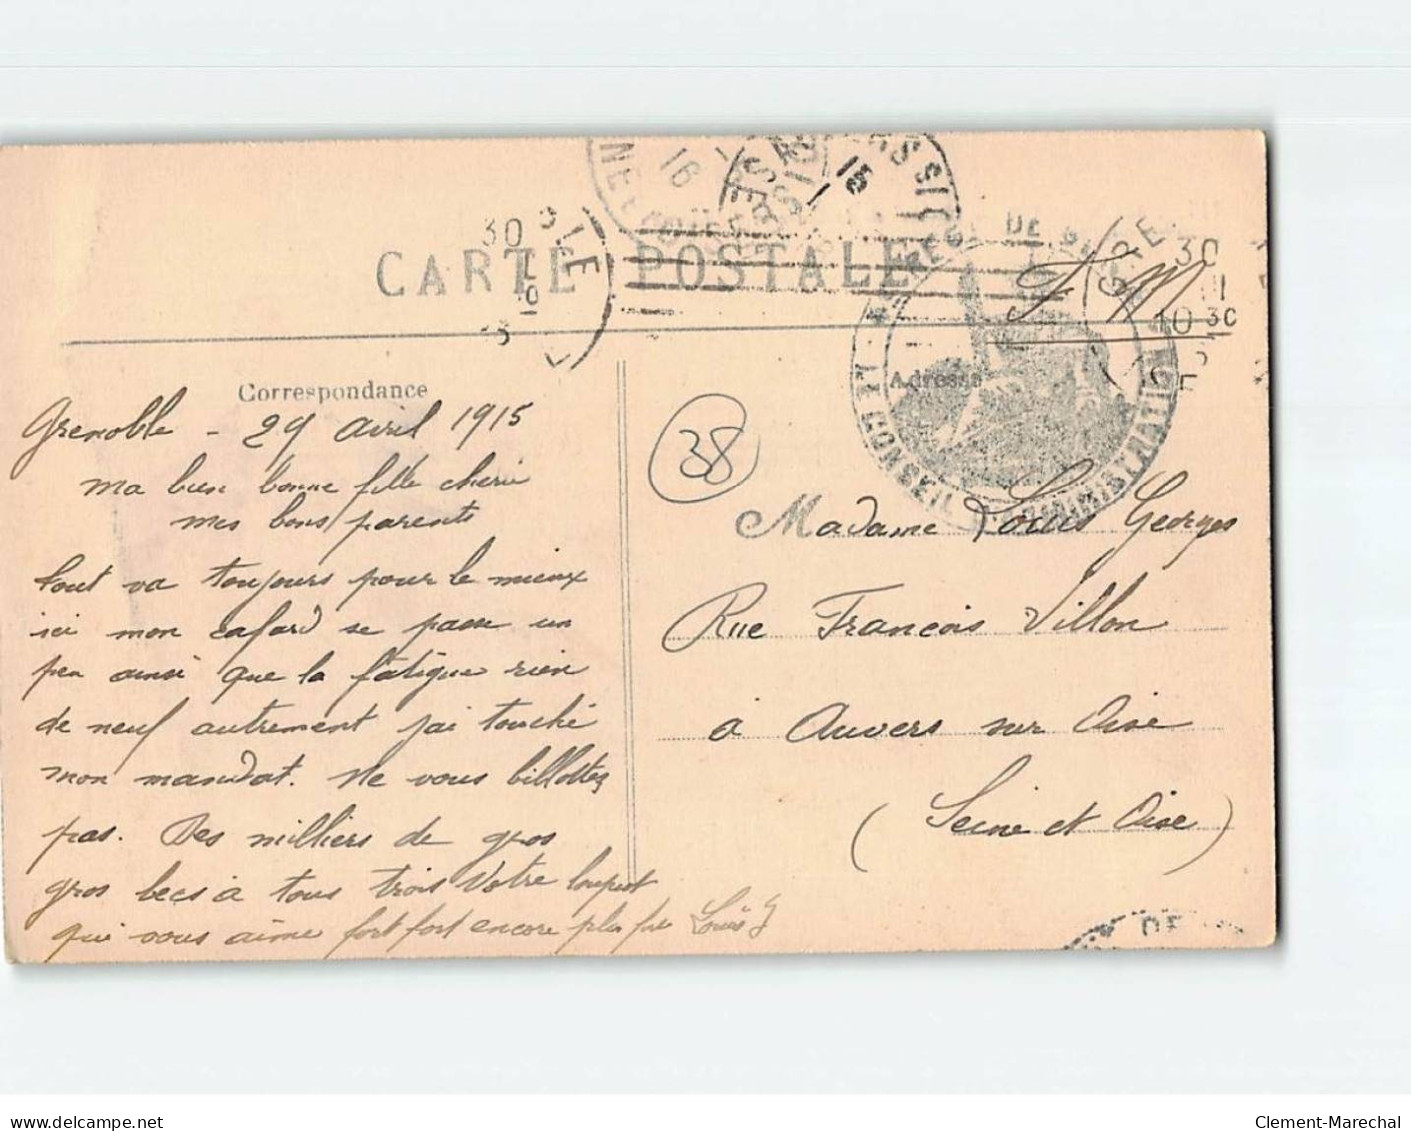 CARTE POSTALE
F. M.
Correspondance
Adresse
Grenoble - 29 avril 1915
Ma bien bonne fille cherie
mes bons parents
tout va toujours pour le mieux
ici mon cafard se passe un
peu ainsi que la fatigue rien
de neuf autrement j'ai touché
mon mandat. Ne vous bilottez
pas. Des milliers de gros
gros becs à tous trois Votre loupiot
qui vous aime fort fort encore plus fort Louis G
38
Madame Louis Georges
Rue Francois Villon
à Auvers sur Oise
(Seine et Oise)
LE CONSEIL D'ADMINISTRATION
30
10 30
30
16
15
DE
delcampe.net
Clement-Marechal